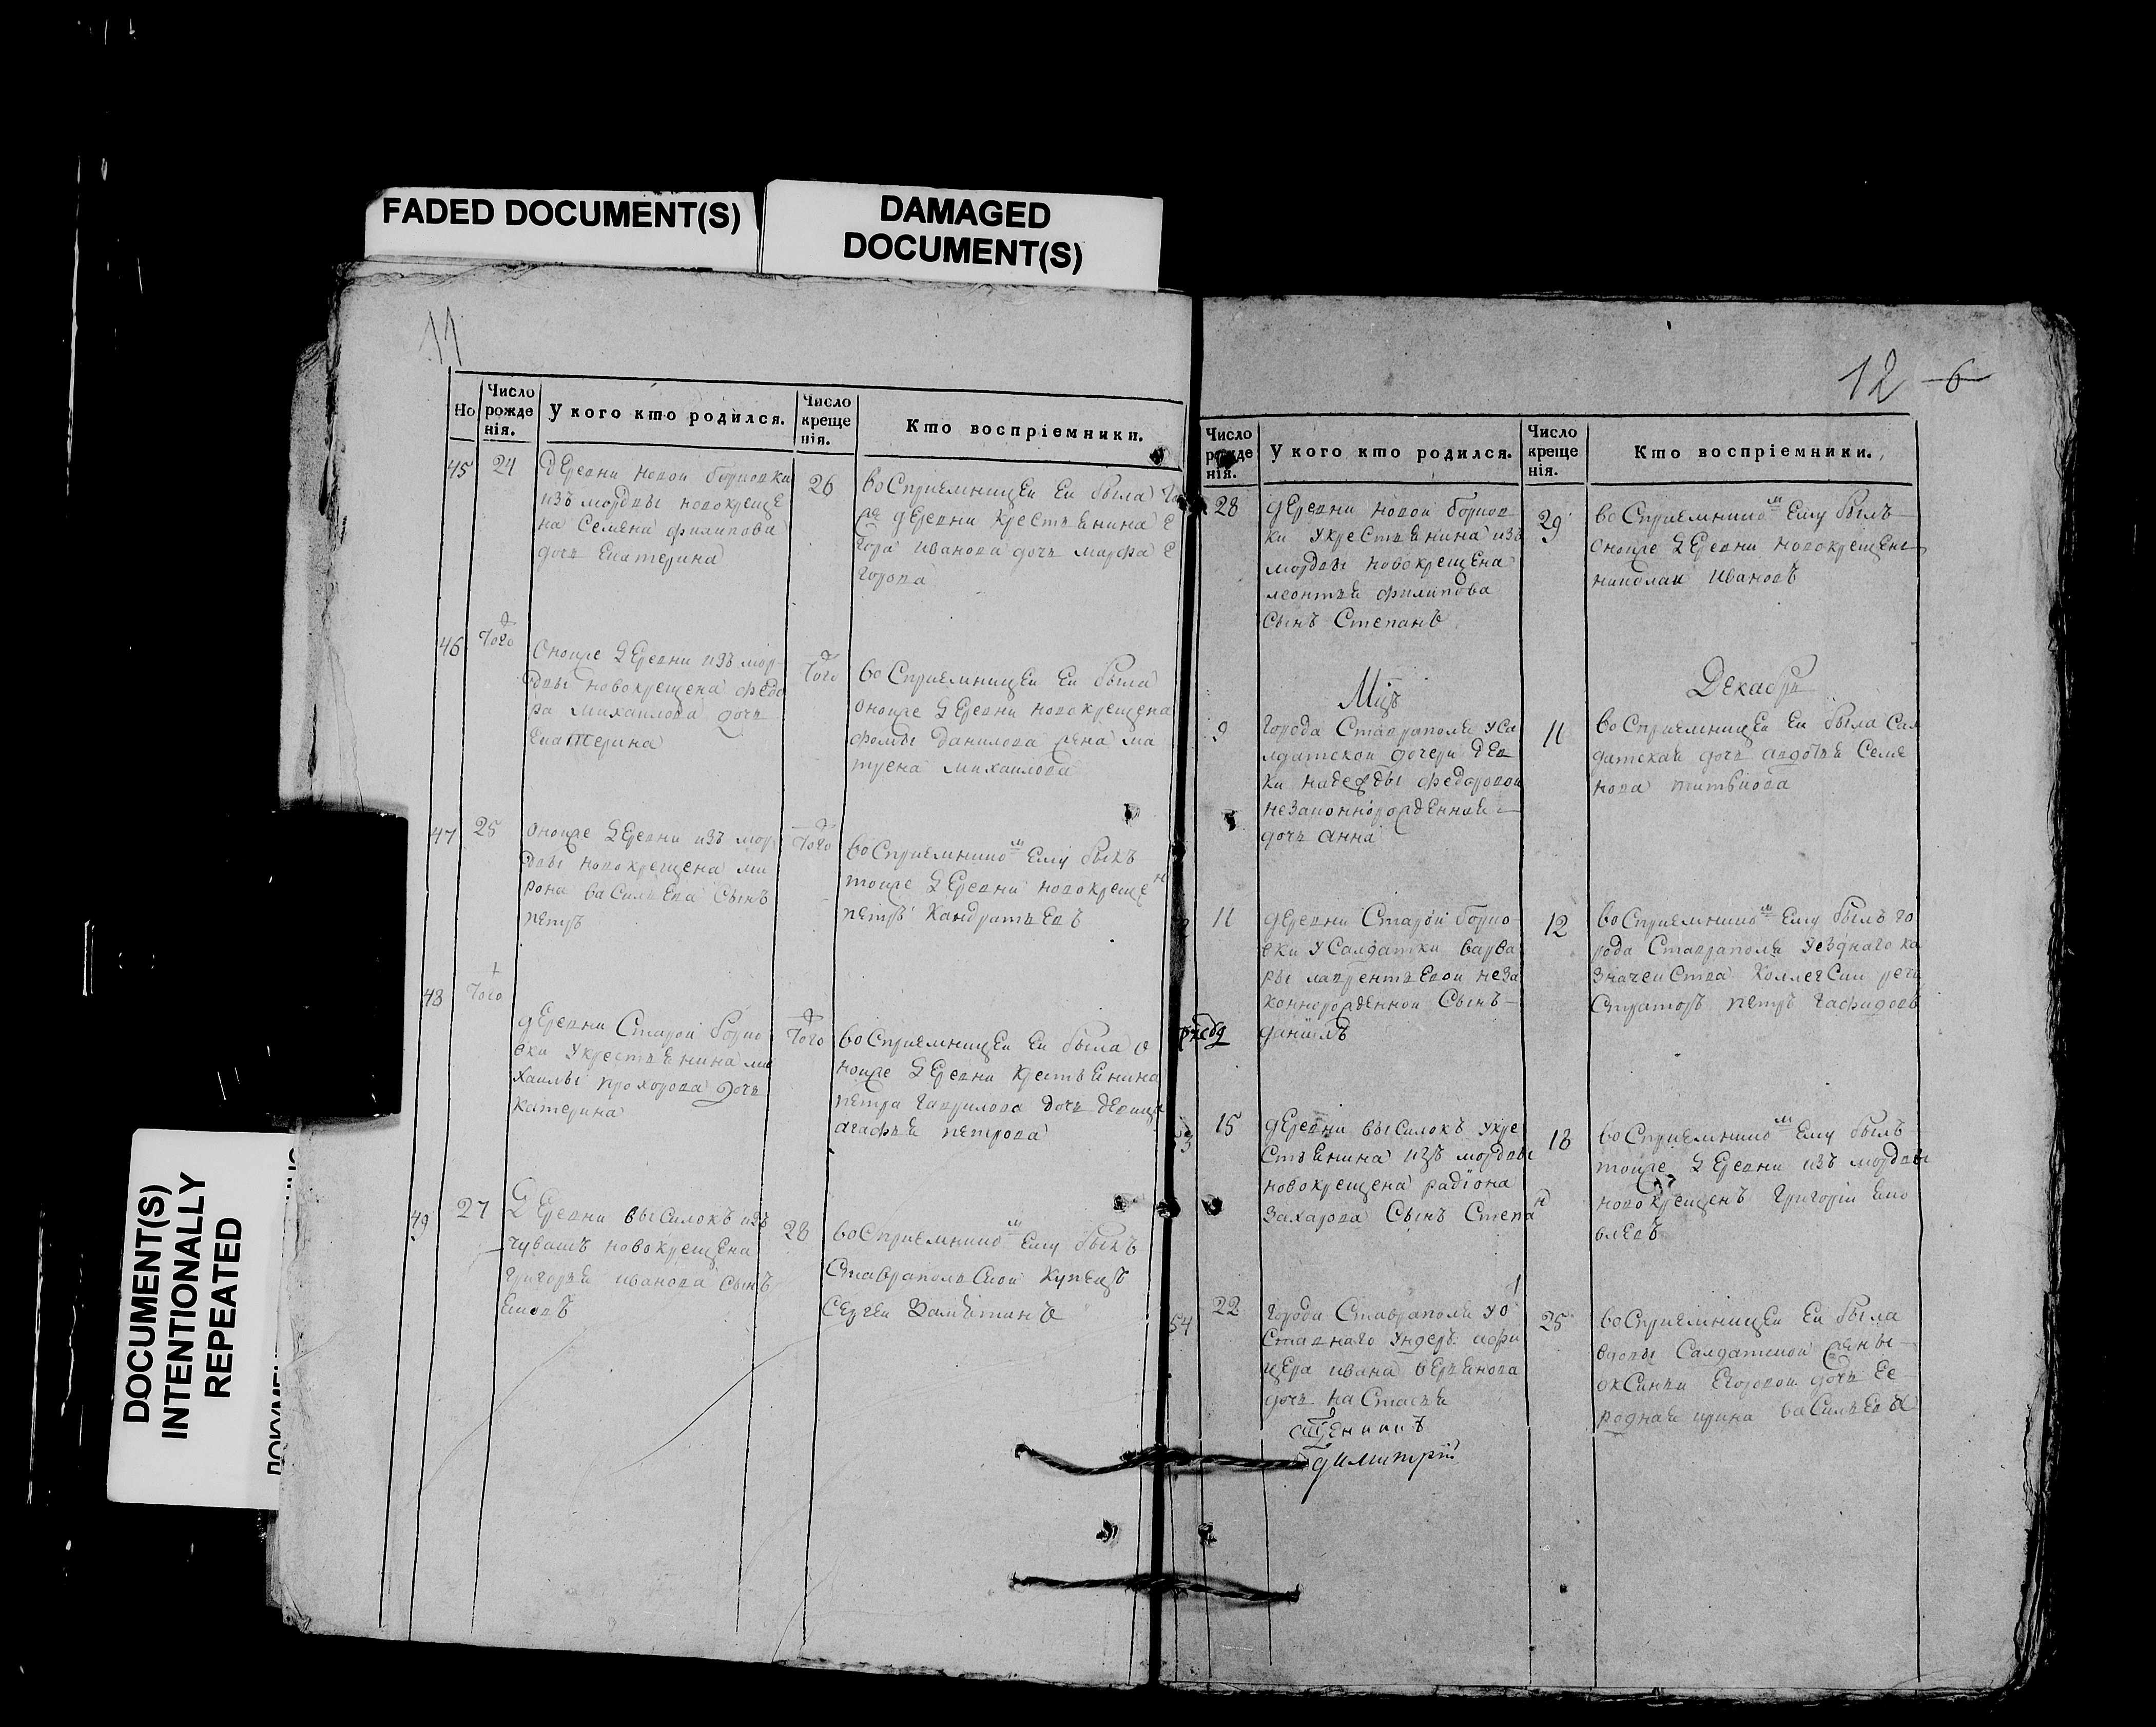 FADED DOCUMENT(S)
DAMAGED
DOCUMENT(S)
DOCUMENT(S)
INTENTIONALLY
REPEATED
11
Но
Число
рожде
нія.
У кого кто родился.
Число
креще
нія.
Кто воспріемники.
45
24
деревни новой борковки
изъ мордвы новокреще
на Семена филипова
дочь Екатерина
26
воСприемницеи еи была
деревни крестьянина е
гора иванова дочь марфа е
горова
46
того
Онойже деревни изъ мор
двы новокрещена федо
ра михаилова дочь
Екатерина
того
воСприемницеи еи была
онойже деревни новокрещена
фомы данилова жена ма
трена михаилова
47
25
онойже деревни изъ мор
двы новокрещена ми
рона васильева сынъ
петръ
того
воСприемнико м ему былъ
тойже деревни новокреще н
петръ Кандратьевъ
48
того
деревни Старой борко
вки Укрестьянина ми
хаилы прохорова дочь
Катерина
того
воСприемницеи еи была о
нойже деревни крестьянина
петра гаврилова дочь девица
агафья петрова
49
27
деревни выСилокъ изъ
чувашъ новокрещена
григорья иванова сынъ
28
воСприемнико м ему былъ
Ставропольской Купецъ
Сергеи
12 6
Число
рожде
нія.
У кого кто родился.
Число
креще
нія.
Кто воспріемники.
28
деревни новой борков
ки Укрестьянина изъ
мордвы новокрещена
леонтья филипова
сынъ Степанъ
29
воСприемнико м ему былъ
онойже деревни новокрещенъ
николаи ивановъ
Мцъ
Декабрь
9
города Ставрополя уСа
лдатской дочери дев
ки надежды федоровой
незаконнорожденная
дочь анна
11
воСприемницеи еи была Сал
датская дочь авдотья Семе
нова
11
деревни Старой борко
вки уСалдатки варва
ры лаврентьевой неза
коннорожденной Сынъ
даниилъ
12
воСприемнико м ему былъ го
рода Ставрополя уезднаго ка
значейства Коллегски реги
Страторъ петръ
15
деревни выСилокъ укре
Стьянина изъ мордвы
новокрещена радіона
захарова Сынъ Степа н
18
воСприемнико м ему былъ
тойже деревни изъ мордвы
новокрещенъ григорій яко
влевъ
54
22
города Ставрополя уо
Ставнаго Ундеръ афи
цера ивана
дочь наСтасья
25
воСприемницеи еи была
вдовы Салдатской жены
окСиньи Егоровой дочь ее
родная ирина ваСильева
сщенникъ
димитрій